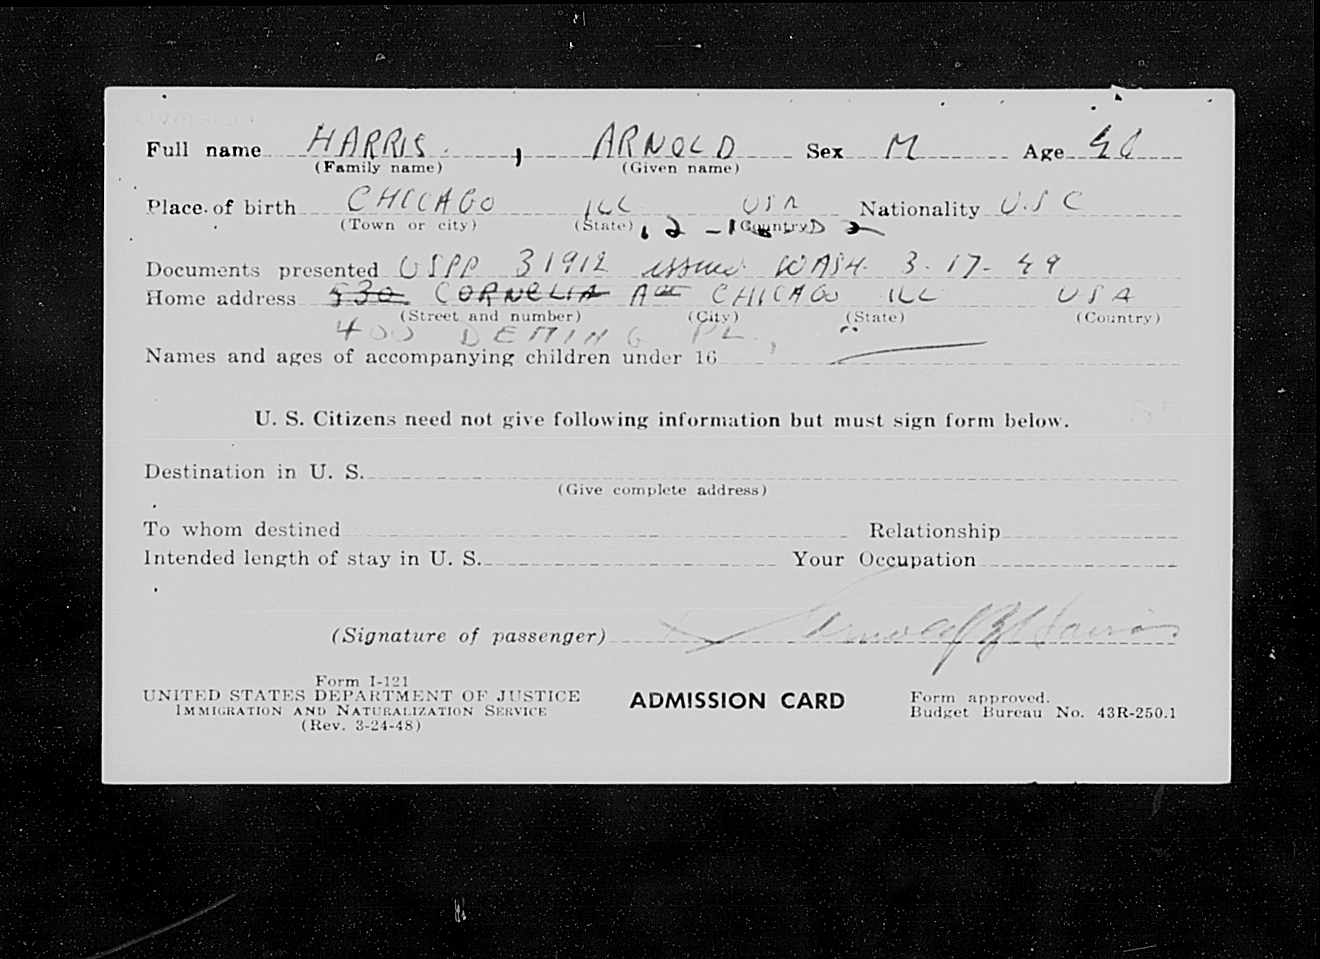 Full name HARRIS , ARNOLD Sex M Age
(Family name) (Given name)
Place of birth CHICAGO ILL USA Nationality U.S C
(Town or city) (State) (Country)
Documents presented USPP 31912 issued WASH. 3-17-49
Home address 530 CORNELIA Ave CHICAGO ILL USA
(Street and number) (City) (State) (Country)
400 DEMING PL.,
Names and ages of accompanying children under 16
U. S. Citizens need not give following information but must sign form below.
Destination in U. S.
(Give complete address)
To whom destined Relationship
Intended length of stay in U. S. Your Occupation
(Signature of passenger) Arnold B Harris
Form I-121
UNITED STATES DEPARTMENT OF JUSTICE ADMISSION CARD Form approved.
IMMIGRATION AND NATURALIZATION SERVICE Budget Bureau No. 43R-250.1
(Rev. 3-24-48)